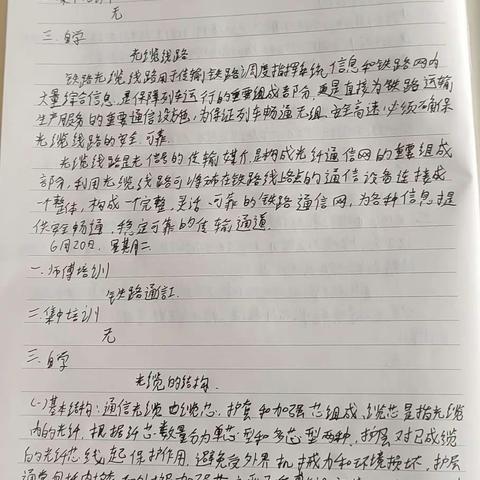 无
三. 自学
光缆线路
铁路光缆线路用于传输铁路调度指挥系统信息和铁路网内
大量综合信息,是保障列车运行的重要组成部分,更是直接为铁路运输
生产服务的重要通信设施,为保证列车畅通无阻、安全高速,必须确保
光缆线路的安全、可靠.
光缆线路是光信号的传输媒介,是构成光纤通信网的重要组成
部分,利用光缆线路可将铁路线路点的通信设备连接成
一个整体,构成一个完整、灵活、可靠的铁路通信网,为各种信息提
供安全畅通、稳定可靠的传输通道.
6月20日. 星期二.
一. 师傅培训
铁路通信工.
二. 集中培训
无
三. 自学
光缆的结构.
(一)基本结构:通信光缆由缆芯、护套和加强芯组成,缆芯是指光缆
内的光纤,根据纤芯数量分为单芯型和多芯型两种,护层对已成缆
的光纤芯线起保护作用,避免受外界机械力和环境损坏,护层